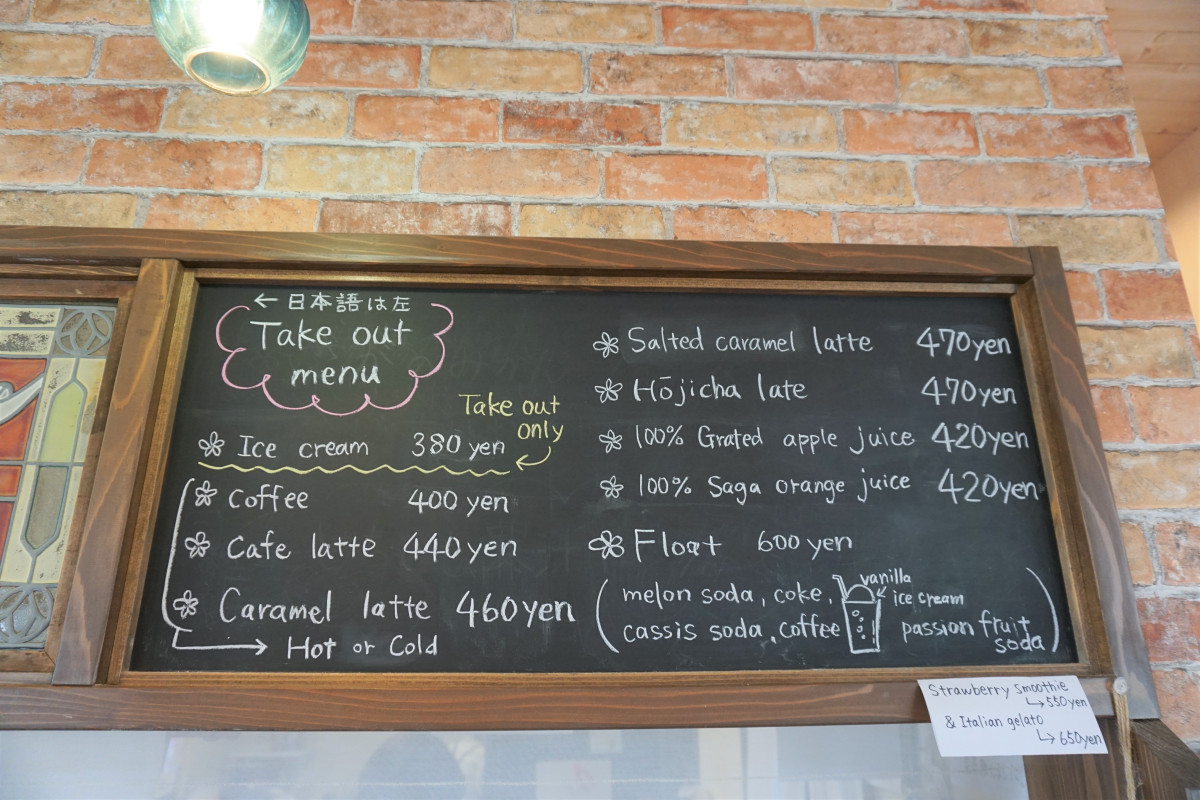 ← 日本語は左
Take out
menu
Take out
only
Ice cream 380 yen
Coffee 400 yen
Cafe latte 440 yen
Caramel latte 460 yen
Hot or Cold
Salted caramel latte 470 yen
Hōjicha late 470 yen
100% Grated apple juice 420 yen
100% Saga orange juice 420 yen
Float 600 yen
(melon soda, coke,
cassis soda, coffee
vanilla
ice cream
passion fruit
soda)
Strawberry smoothie
↳ 550yen
& Italian gelato
↳ 650yen